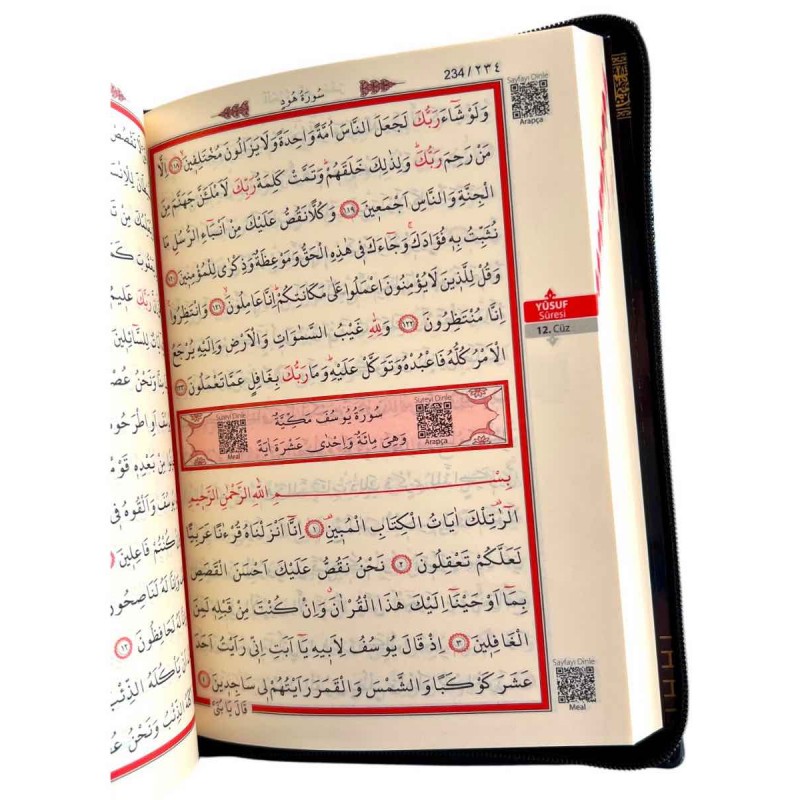 سُورَةُ هُودٍ
234 / ٢٣٤
وَلَوْ شَٓاءَ رَبُّكَ لَجَعَلَ النَّاسَ اُمَّةً وَاحِدَةً وَلَا يَزَالُونَ مُخْتَلِفٖينَۙ ﴿١١٨﴾ اِلَّا
مَنْ رَحِمَ رَبُّكَۜ وَلِذٰلِكَ خَلَقَهُمْۜ وَتَمَّتْ كَلِمَةُ رَبِّكَ لَاَمْلَـَٔنَّ جَهَنَّمَ مِنَ
الْجِنَّةِ وَالنَّاسِ اَجْمَعٖينَ ﴿١١٩﴾ وَكُلًّا نَقُصُّ عَلَيْكَ مِنْ اَنْبَٓاءِ الرُّسُلِ مَا
نُثَبِّتُ بِهٖ فُؤٰادَكَۚ وَجَٓاءَكَ فٖي هٰذِهِ الْحَقُّ وَمَوْعِظَةٌ وَذِكْرٰى لِلْمُؤْمِنٖينَ ﴿١٢٠﴾
وَقُلْ لِلَّذٖينَ لَا يُؤْمِنُونَ اعْمَلُوا عَلٰى مَكَانَتِكُمْۜ اِنَّا عَامِلُونَۙ ﴿١٢١﴾ وَانْتَظِرُواۚ
اِنَّا مُنْتَظِرُونَ ﴿١٢٢﴾ وَلِلّٰهِ غَيْبُ السَّمٰوَاتِ وَالْاَرْضِ وَاِلَيْهِ يُرْجَعُ
الْاَمْرُ كُلُّهُ فَاعْبُدْهُ وَتَوَكَّلْ عَلَيْهِۜ وَمَا رَبُّكَ بِغَافِلٍ عَمَّا تَعْمَلُونَ ﴿١٢٣﴾
سُورَةُ يُوسُفَ مَكِّيَّةٌ
وَهِيَ مِائَةٌ وَاِحْدٰى عَشْرَةَ اٰيَةً
Sureyi Dinle
Meal
Sureyi Dinle
Arapça
بِسْمِ اللّٰهِ الرَّحْمٰنِ الرَّحٖيمِ
الٓرٰ۠ تِلْكَ اٰيَاتُ الْكِتَابِ الْمُبٖينِ ﴿١﴾ اِنَّٓا اَنْزَلْنَاهُ قُرْءٰناً عَرَبِياًّ
لَعَلَّكُمْ تَعْقِلُونَ ﴿٢﴾ نَحْنُ نَقُصُّ عَلَيْكَ اَحْسَنَ الْقَصَصِ
بِمَٓا اَوْحَيْنَٓا اِلَيْكَ هٰذَا الْقُرْاٰنَۗ وَاِنْ كُنْتَ مِنْ قَبْلِهٖ لَمِنَ
الْغَافِلٖينَ ﴿٣﴾ اِذْ قَالَ يُوسُفُ لِاَبٖيهِ يَٓا اَبَتِ اِنّٖي رَاَيْتُ اَحَدَ
عَشَرَ كَوْكَباً وَالشَّمْسَ وَالْقَمَرَ رَاَيْتُهُمْ لٖي سَاجِدٖينَ ﴿٤﴾
قَالَ يَا بُنَيَّ
Sayfayı Dinle
Arapça
YÛSUF
Sûresi
12. Cüz
Sayfayı Dinle
Meal